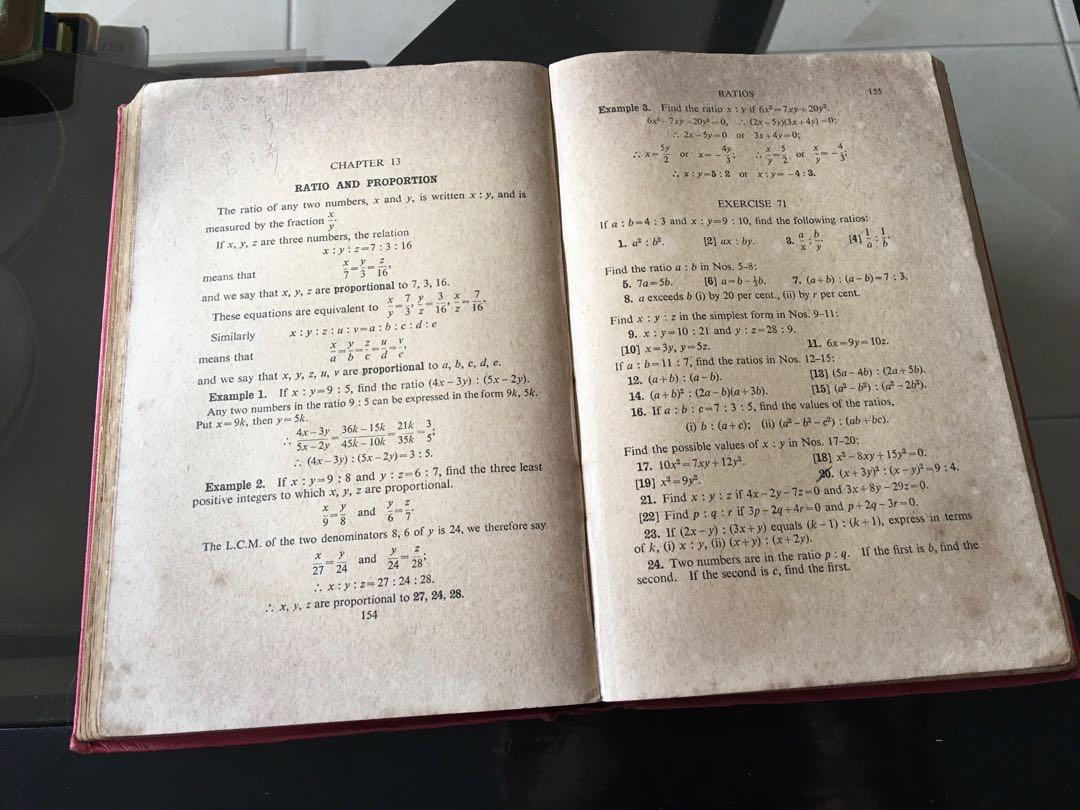 CHAPTER 13
RATIO AND PROPORTION
The ratio of any two numbers, x and y, is written x : y, and is
measured by the fraction x/y.
If x, y, z are three numbers, the relation
x : y : z=7 : 3 : 16
means that x/7=y/3=z/16,
and we say that x, y, z are proportional to 7, 3, 16.
These equations are equivalent to x/y=7/3, y/z=3/16, x/z=7/16.
Similarly x : y : z : u : v=a : b : c : d : e
means that x/a=y/b=z/c=u/d=v/e,
and we say that x, y, z, u, v are proportional to a, b, c, d, e.
Example 1. If x : y=9 : 5, find the ratio (4x−3y) : (5x−2y).
Any two numbers in the ratio 9 : 5 can be expressed in the form 9k, 5k.
Put x=9k, then y=5k.
∴ (4x−3y)/(5x−2y)=(36k−15k)/(45k−10k)=21k/35k=3/5;
∴ (4x−3y) : (5x−2y)=3 : 5.
Example 2. If x : y=9 : 8 and y : z=6 : 7, find the three least
positive integers to which x, y, z are proportional.
x/9=y/8 and y/6=z/7.
The L.C.M. of the two denominators 8, 6 of y is 24, we therefore say
x/27=y/24 and y/24=z/28;
∴ x : y : z=27 : 24 : 28.
∴ x, y, z are proportional to 27, 24, 28.
154
RATIOS 155
Example 3. Find the ratio x : y if 6x²=7xy+20y².
6x²−7xy−20y²=0, ∴ (2x−5y)(3x+4y)=0;
∴ 2x−5y=0 or 3x+4y=0;
∴ x=5y/2 or x=−4y/3; ∴ x/y=5/2 or x/y=−4/3,
∴ x : y=5 : 2 or x : y=−4 : 3.
EXERCISE 71
If a : b=4 : 3 and x : y=9 : 10, find the following ratios:
1. a² : b². [2] ax : by. 3. a/x : b/y. [4] 1/a : 1/b.
Find the ratio a : b in Nos. 5-8:
5. 7a=5b. [6] a=b− b. 7. (a+b) : (a−b)=7 : 3.
8. a exceeds b (i) by 20 per cent., (ii) by r per cent.
Find x : y : z in the simplest form in Nos. 9-11:
9. x : y=10 : 21 and y : z=28 : 9.
[10] x=3y, y=5z. 11. 6x=9y=10z.
If a : b=11 : 7, find the ratios in Nos. 12-15:
12. (a+b) : (a−b). [13] (5a−4b) : (2a+5b).
14. (a+b)² : (2a−b)(a+3b). [15] (a²−b²) : (a²−2b²).
16. If a : b : c=7 : 3 : 5, find the values of the ratios,
(i) b : (a+c); (ii) (a²−b²−c²) : (ab+bc).
Find the possible values of x : y in Nos. 17-20:
17. 10x²=7xy+12y². [18] x²−8xy+15y²=0.
[19] x²=9y². 20. (x+3y)² : (x−y)²=9 : 4.
21. Find x : y : z if 4x−2y−7z=0 and 3x+8y−29z=0.
[22] Find p : q : r if 3p−2q+4r=0 and p+2q−3r=0.
23. If (2x−y) : (3x+y) equals (k−1) : (k+1), express in terms
of k, (i) x : y, (ii) (x+y) : (x+2y).
24. Two numbers are in the ratio p : q. If the first is b, find the
second. If the second is c, find the first.